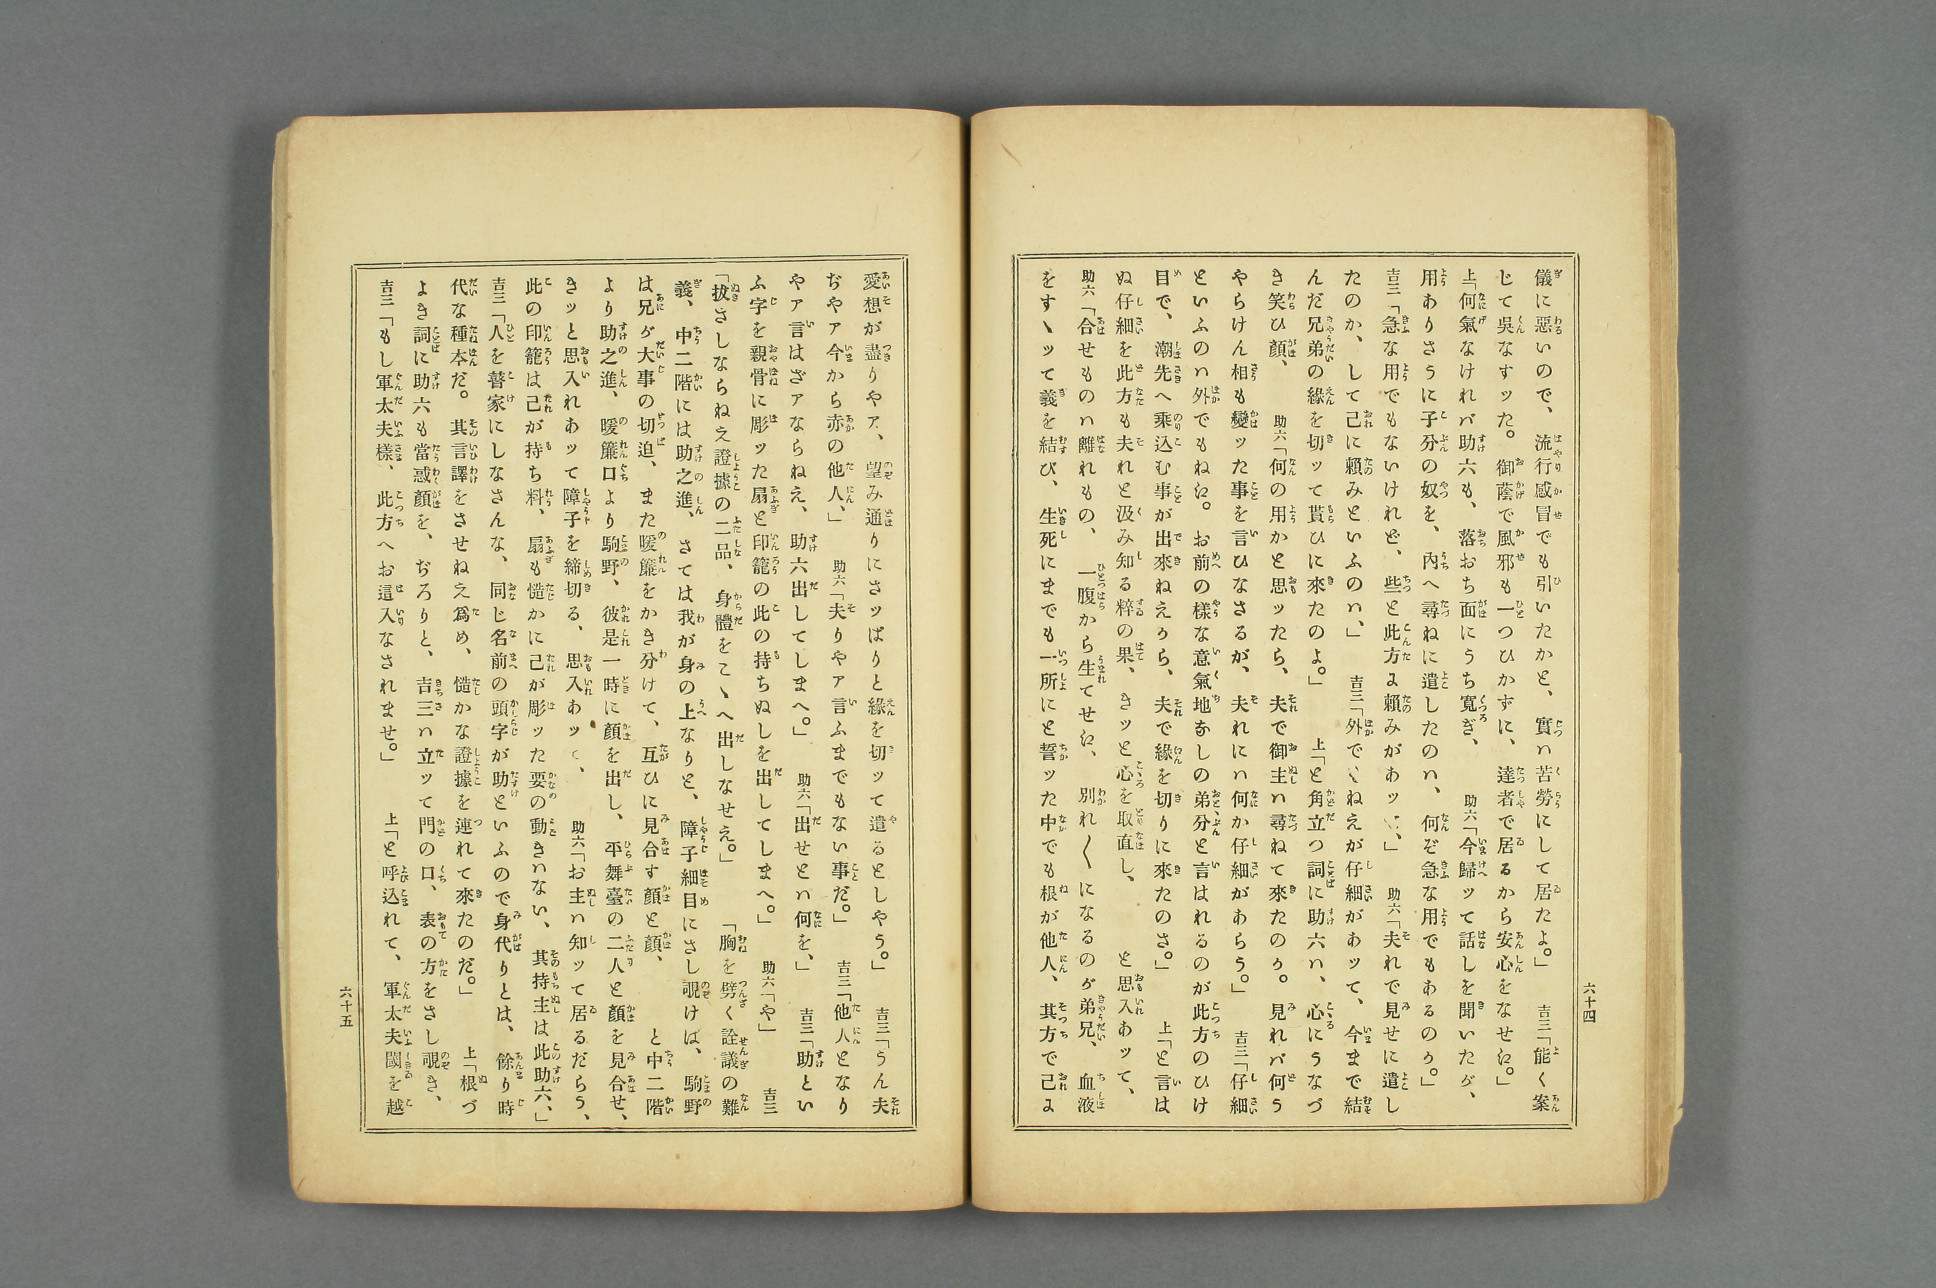 六十四
儀に惡いので、流行感冒でも引いたかと、實ハ苦勞にして居たよ。」　吉三「能く案
じて吳なすッた。御蔭で風邪も一つひかずに、達者で居るから安心をなせゑ。」
上「何氣なけれバ助六も、落おち面にうち寬ぎ、　助六「今歸ッて話しを聞いたが、
用ありさうに子分の奴を、內へ尋ねに遣したのハ、何ぞ急な用でもあるのか。」
吉三「急な用でもないけれど、些と此方よ賴みがあッて、」　助六「夫れで見せに遣し
たのか、して己に賴みといふのハ、」　吉三「外でもねえが仔細があッて、今まで結
んだ兄弟の緣を切ッて貰ひに來たのよ。」　上「と角立つ詞に助六ハ、心にうなづ
き笑ひ顏、　助六「何の用かと思ッたら、夫で御主ハ尋ねて來たのか。見れバ何う
やらけん相も變ッた事を言ひなさるが、夫れにハ何か仔細があらう。」　吉三「仔細
といふのハ外でもねゑ。お前の樣な意氣地なしの弟分と言はれるのが此方のひけ
目で、潮先へ乘込む事が出來ねえから、夫で緣を切りに來たのさ。」　上「と言は
ぬ仔細を此方も夫れと汲み知る粹の果、きッと心を取直し、　と思入あッて、
助六「合せものハ離れもの、一腹から生てせゑ、別れ〳〵になるのが弟兄、血液
をすゝッて義を結び、生死にまでも一所にと誓ッた中でも根が他人、其方で己よ
愛想が盡りやァ、望み通りにさッぱりと緣を切ッて遣るとしやう。」　吉三「うん夫
ぢやァ今から赤の他人、」　助六「夫りやァ言ふまでもない事だ。」　吉三「他人となり
やァ言はざァならねえ、助六出してしまへ。」　助六「出せとハ何を、」　吉三「助とい
ふ字を親骨に彫ッた扇と印籠の此の持ちぬしを出してしまへ。」　助六「や」　吉三
「拔さしならねえ證據の二品、身體をこゝへ出しなせえ。」　「胸を劈く詮議の難
義、中二階には助之進、さては我が身の上なりと、障子細目にさし覗けば、駒野
は兄が大事の切迫、また暖簾をかき分けて、互ひに見合す顏と顏、　と中二階
より助之進、暖簾口より駒野、彼是一時に顏を出し、平舞臺の二人と顏を見合せ、
きッと思入れあッて障子を締切る、思入あッて、　助六「お主ハ知ッて居るだらう、
此の印籠は己が持ち料、扇も慥かに己が彫ッた要の動きハない、其持主は此助六、」
吉三「人を瞽家にしなさんな、同じ名前の頭字が助といふので身代りとは、餘り時
代な種本だ。其言譯をさせねえ爲め、慥かな證據を連れて來たのだ。」　上「根づ
よき詞に助六も當惑顏を、ぢろりと、吉三ハ立ッて門の口、表の方をさし覗き、
吉三「もし軍太夫樣、此方へお這入なされませ。」　上「と呼込れて、軍太夫閾を越
六十五